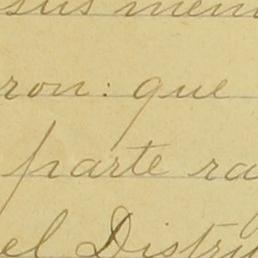 sus mem
ron: que
parte ra
el Distri